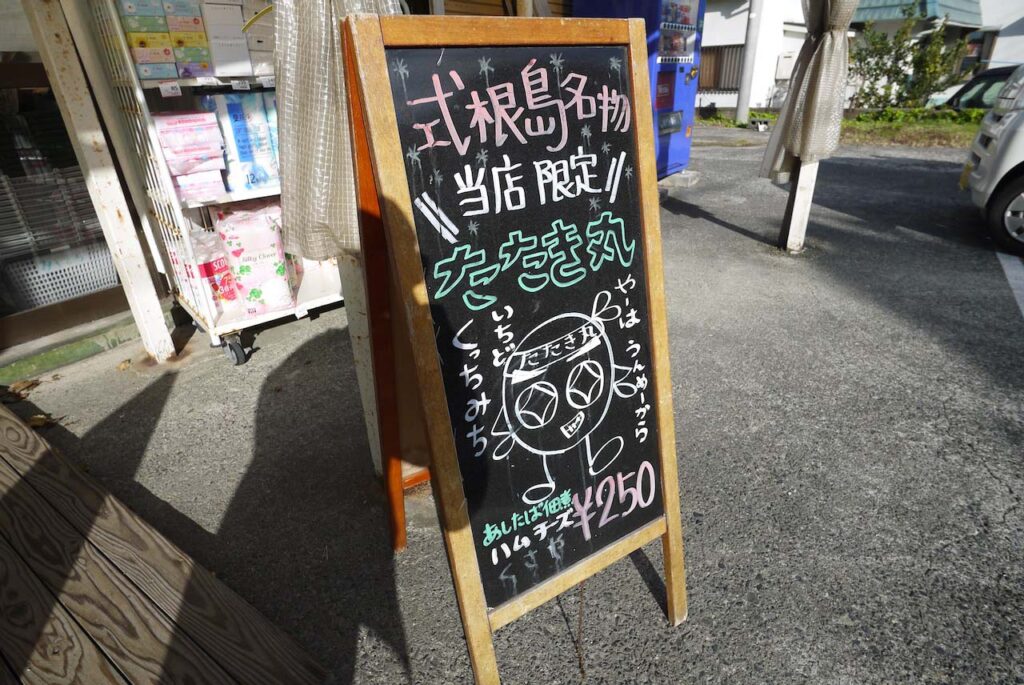 式根島名物
\\当店限定//
たたき丸
やーは うんめーから
いちど
くっちみち
たたき丸
あしたば佃煮
ハムチーズ
くさや
¥250
Silky Clover